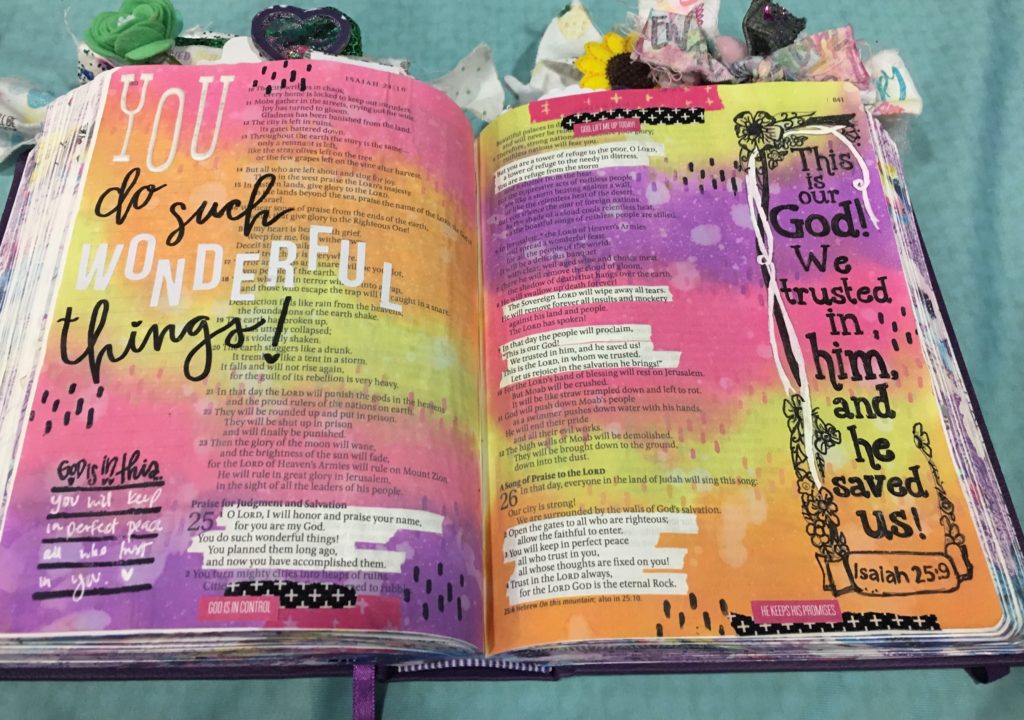 YOU
do such
WONDERFUL
things!
ISAIAH 24:10
in chaos,
home is locked to keep out intruders.
11 Mobs gather in the streets, crying out for wine.
Joy has turned to gloom.
Gladness has been banished from the land.
12 The city is left in ruins,
its gates battered down.
13 Throughout the earth the story is the same—
only a remnant is left,
like the stray olives left on the tree
or the few grapes left on the vine after harvest.
14 But all who are left shout and sing for joy.
in the west praise the LORD's majesty.
15 In lands, give glory to the LORD.
lands beyond the sea, praise the name of the LORD,
of praise from the ends of the earth,
give glory to the Righteous One!
my heart is with grief.
Weep for me, for
Destruction falls like rain from the heavens;
the foundations of the earth shake.
19 The earth has broken up.
It has utterly collapsed;
it is violently shaken.
20 The earth staggers like a drunk.
It trembles like a tent in a storm.
It falls and will not rise again,
for the guilt of its rebellion is very heavy.
21 In that day the LORD will punish the gods in the heavens
and the proud rulers of the nations on earth.
22 They will be rounded up and put in prison.
They will be shut up in prison
and will finally be punished.
23 Then the glory of the moon will wane,
and the brightness of the sun will fade,
for the LORD of Heaven's Armies will rule on Mount Zion.
He will rule in great glory in Jerusalem,
in the sight of all the leaders of his people.
Praise for Judgment and Salvation
25 1 O LORD, I will honor and praise your name,
for you are my God.
You do such wonderful things!
You planned them long ago,
and now you have accomplished them.
2 You turn mighty cities into heaps of ruins.
GOD IS IN CONTROL
God is in this.
you will keep
in perfect peace
all who trust
in you.
841
GOD, LIFT ME UP TODAY!
Beautiful palaces in
and will never be
3 Therefore, strong nations will
ruthless nations will fear you.
But you are a tower of refuge to the poor, O LORD,
a tower of refuge to the needy in distress.
You are a refuge from the storm
The Sovereign LORD will wipe away all tears.
He will remove forever all insults and mockery
against his land and people.
The LORD has spoken!
9 In that day the people will proclaim,
"This is our God!
We trusted in him, and he saved us!
This is the LORD, in whom we trusted.
Let us rejoice in the salvation he brings!"
10 For the LORD's hand of blessing will rest on Jerusalem.
But Moab will be crushed.
It will be like straw trampled down and left to rot.
11 God will push down Moab's people
as a swimmer pushes down water with his hands.
He will end their pride
and all their evil works.
12 The high walls of Moab will be demolished.
They will be brought down to the ground,
down into the dust.
A Song of Praise to the LORD
26 In that day, everyone in the land of Judah will sing this song:
Our city is strong!
We are surrounded by the walls of God's salvation.
2 Open the gates to all who are righteous;
allow the faithful to enter.
3 You will keep in perfect peace
all who trust in you,
all whose thoughts are fixed on you!
4 Trust in the LORD always,
for the LORD GOD is the eternal Rock.
25:6 Hebrew On this mountain; also in 25:10.
HE KEEPS HIS PROMISES
This
is
our
God!
We
trusted
in
him,
and
he
saved
us!
Isaiah 25:9